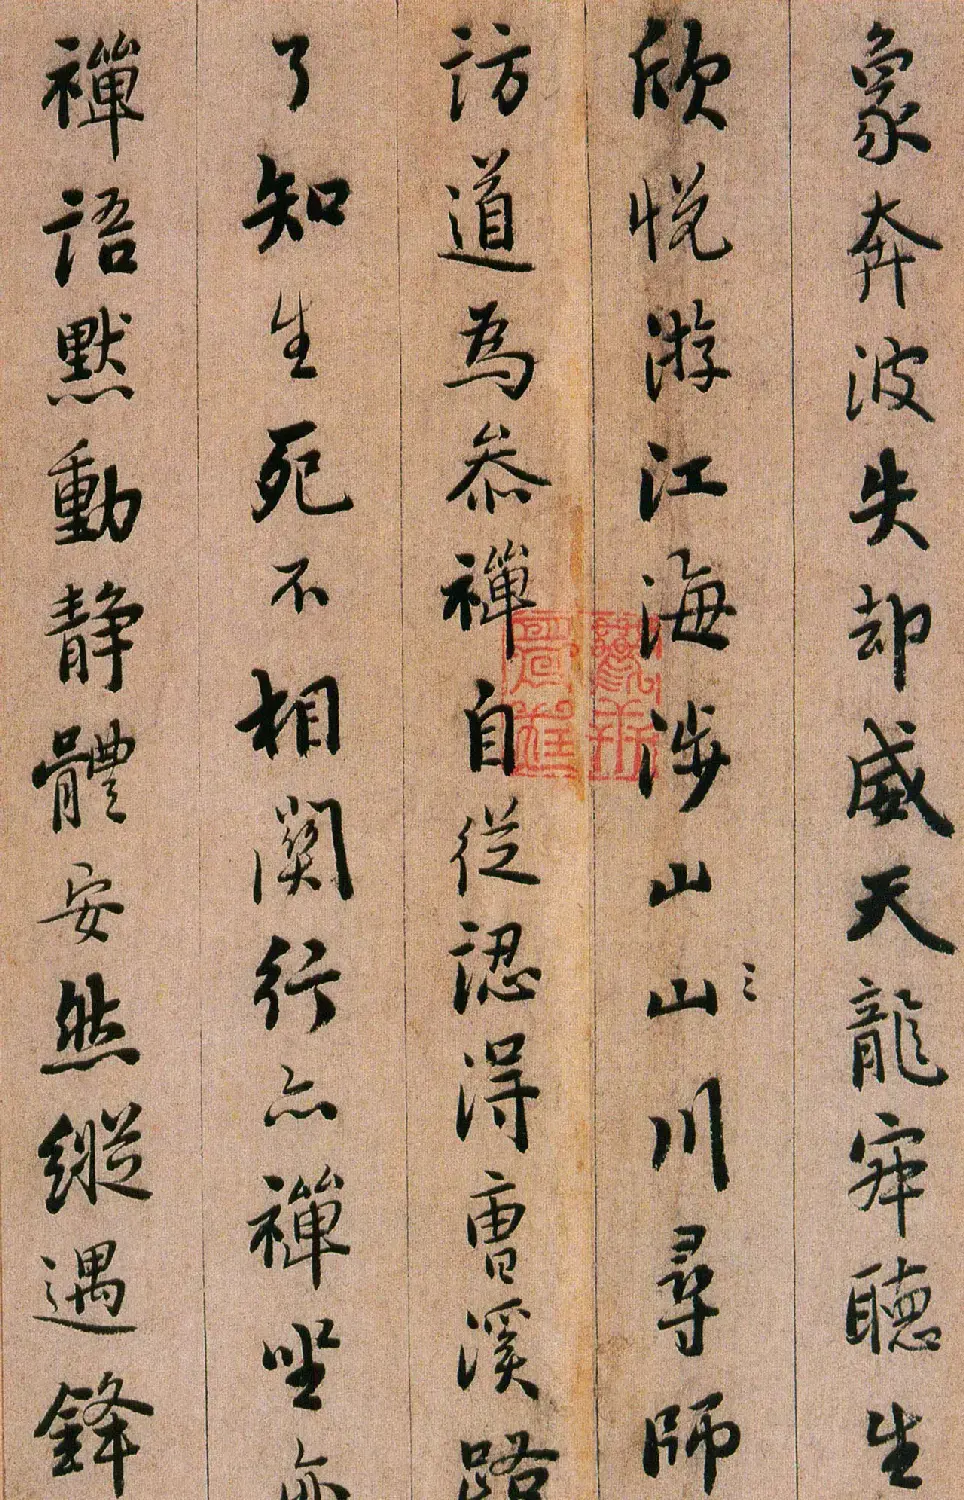 象奔波失却威天龍寂聽生
欣悦游江海涉山山川尋師
訪道為叅禪自從認得曹溪路
了知生死不相關行亦禪坐亦
禪語默動静體安然縱遇鋒